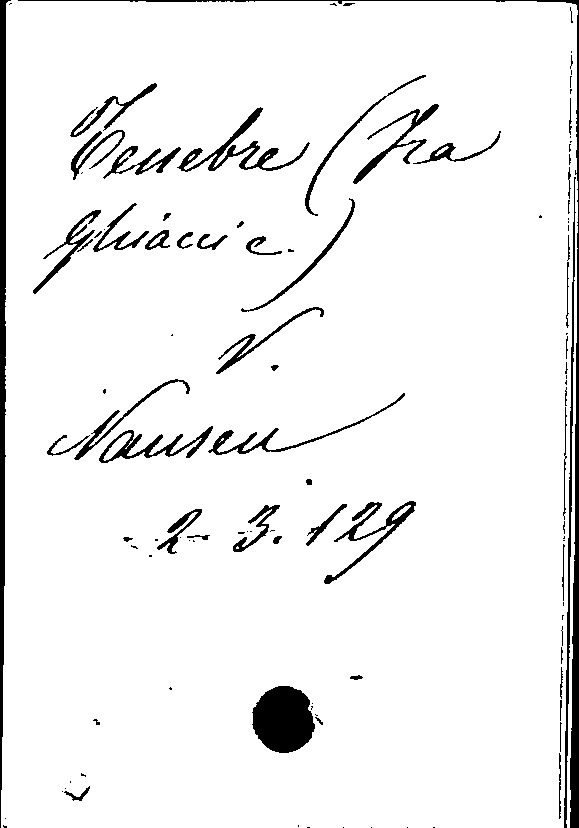 Tenebre (Fra
Ghiacci e)
V.
Nansen
2. 3. 129